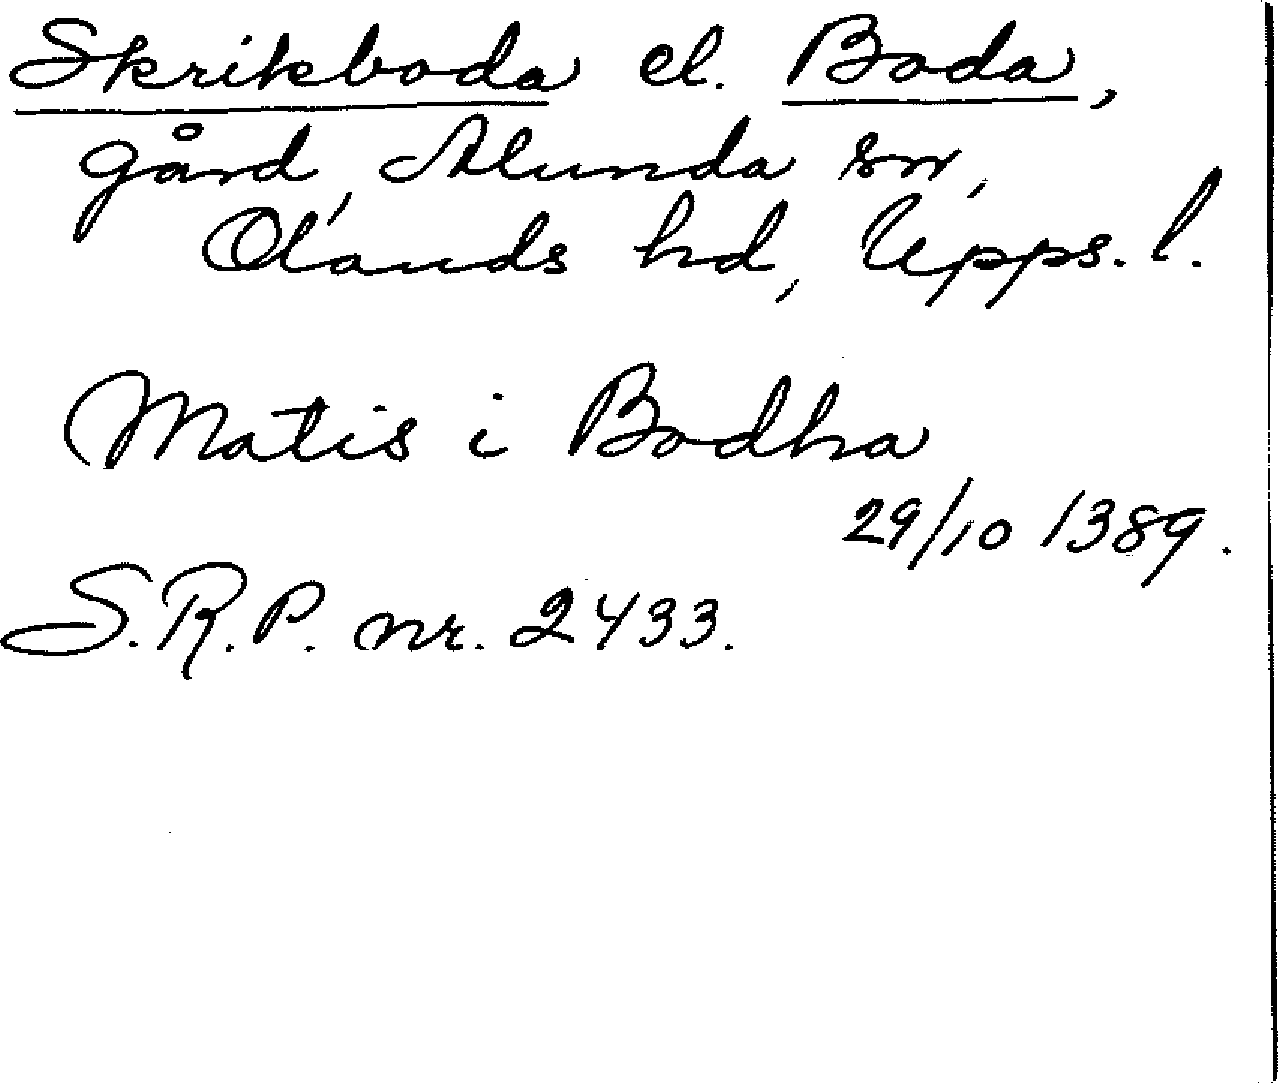 Skrikboda el. Boda,
gård, Alunda sn,
Olands hd, Upps. l.
Matis i Bodha
29/10 1389.
S.R.P. nr. 2433.